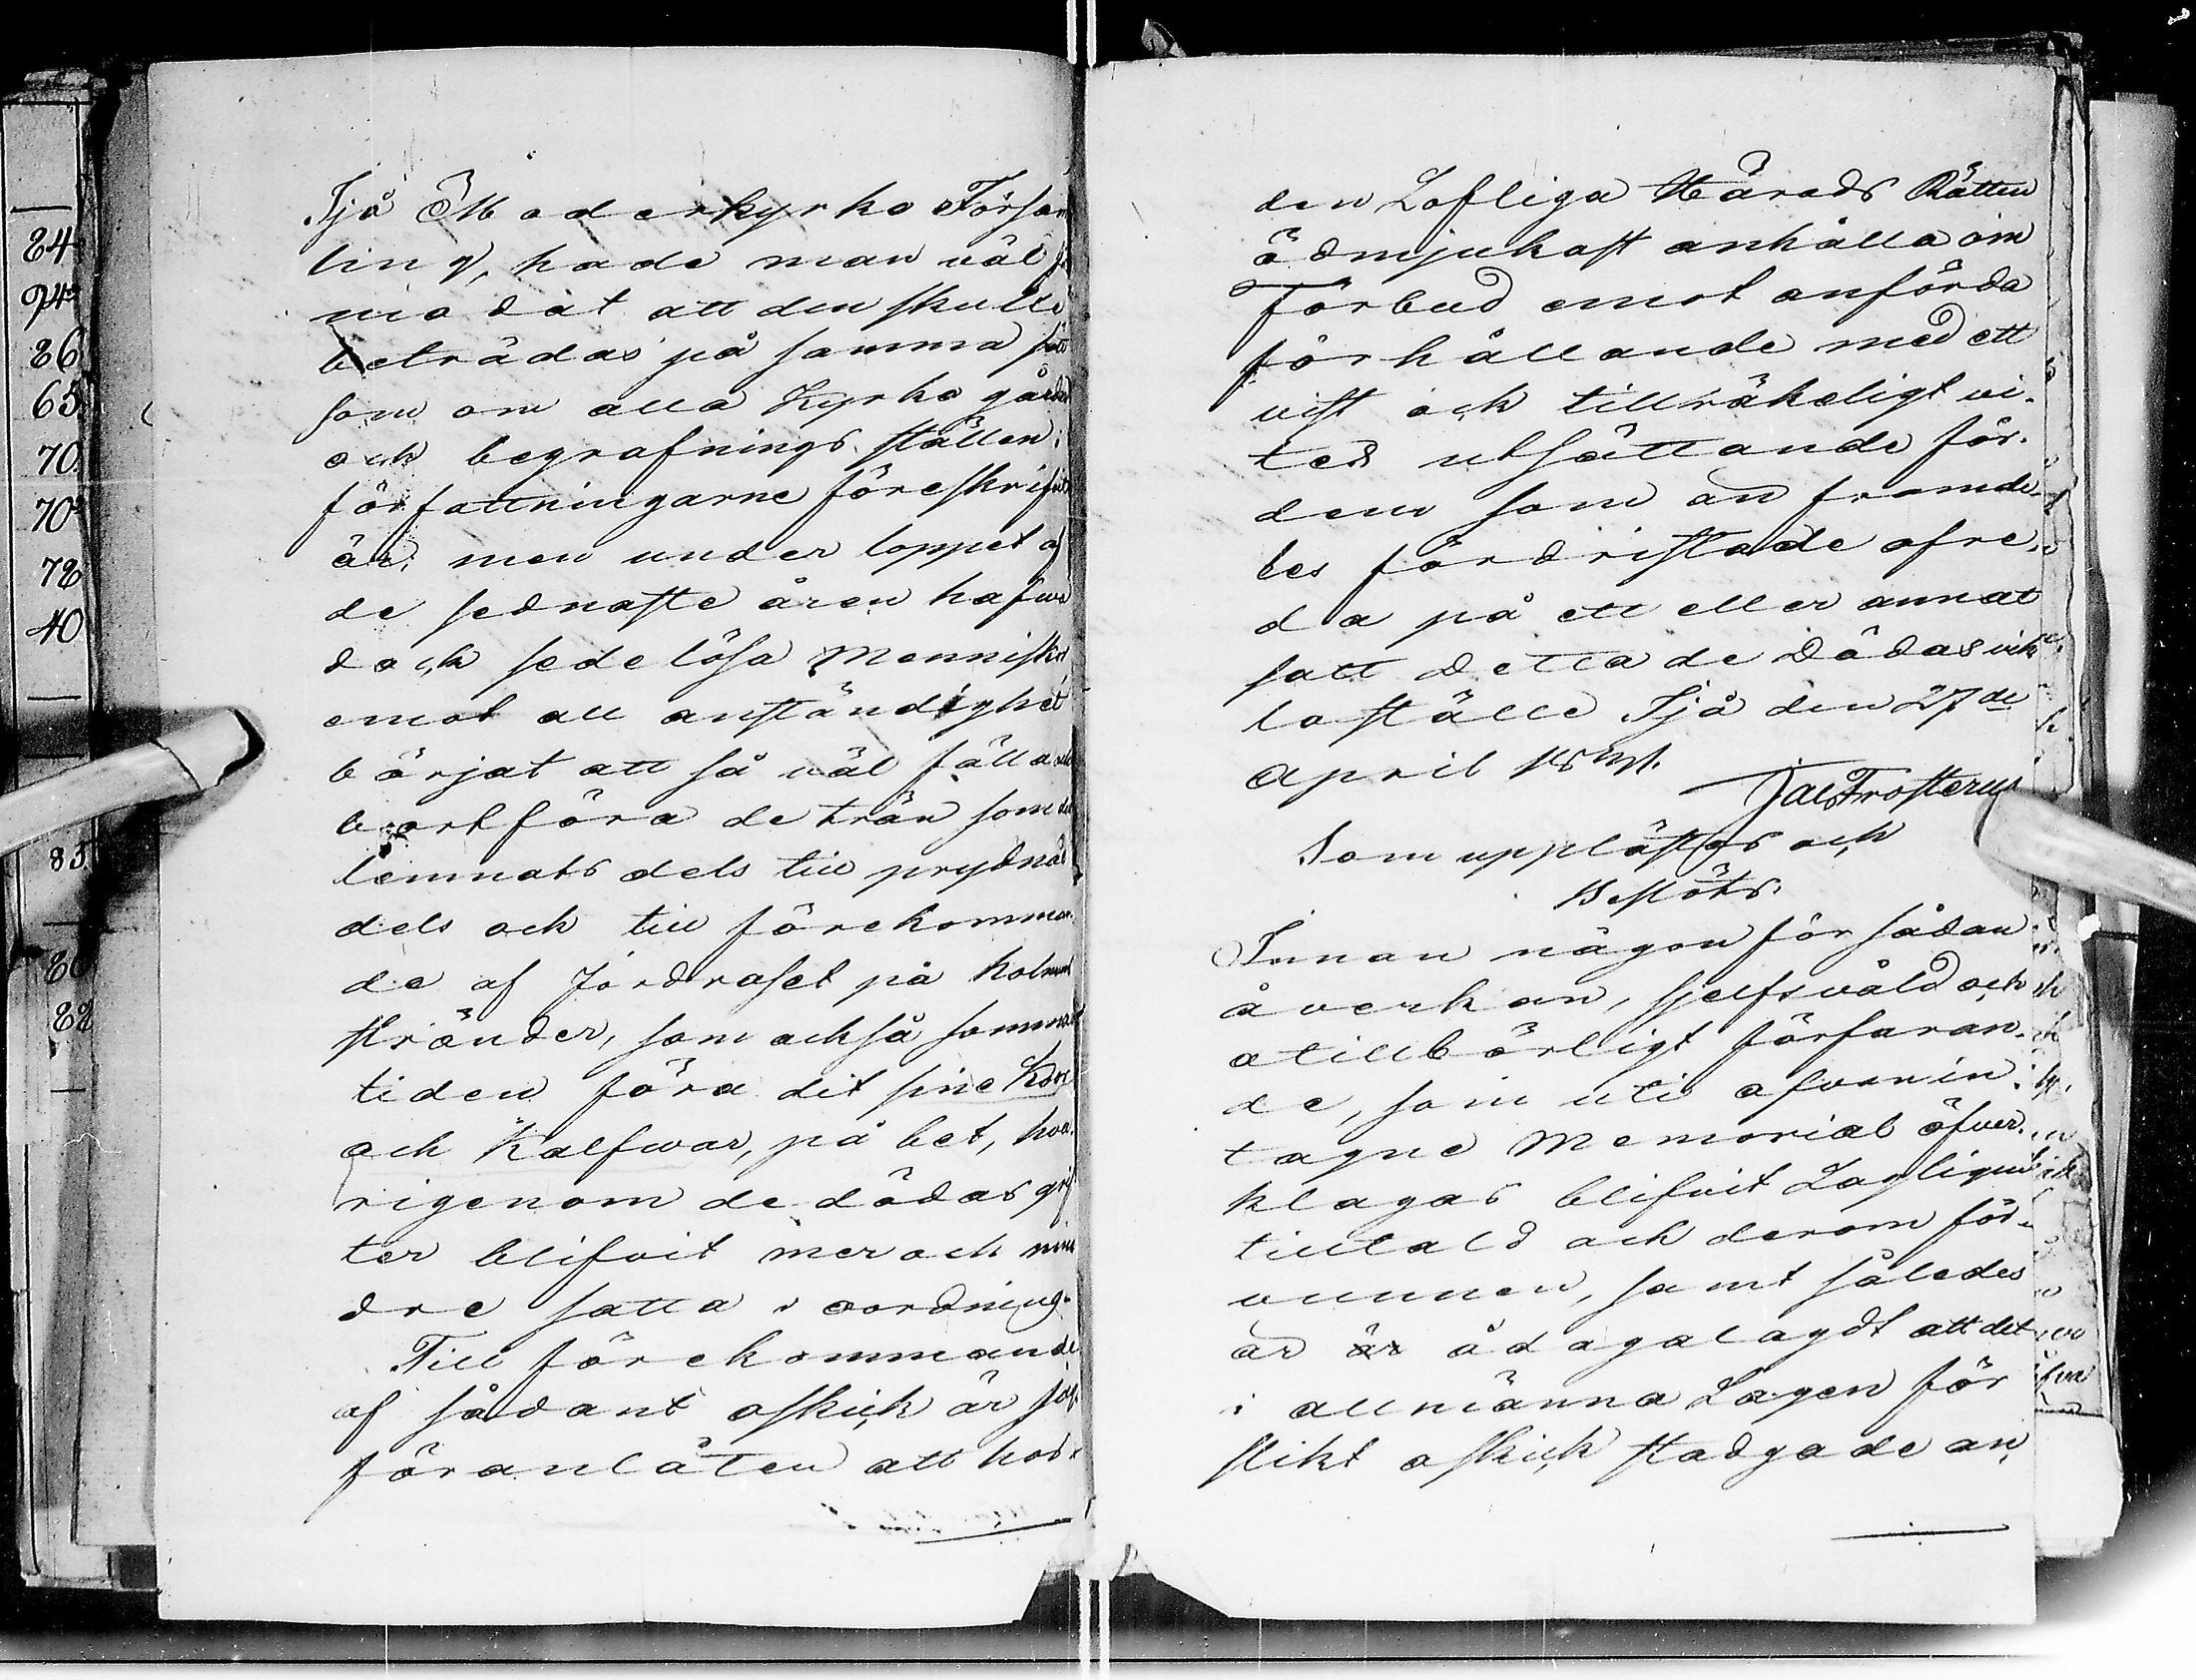 Ijå Moderkyrko Försam
ling, hade man väl
modat att den skulle
beträdas på samma sätt
som om alla Kyrko gårdar
och begrafnings ställen i
författningarne föreskrifvit
är, men under loppet af
de sednaste åren hafva
dock sedelösa Menniskor
emot all anständighet
börjat att så väl fälla och
bortföra de trän som der
lemnats dels till prydnad
dels och till förekomman
de af Jordraset på holmens
stränder, som också sommar
tiden föra dit sine Kor
och Kalfwar, på bet, hva
rigenom de dödas grif
ter blifvit mer och min
dre satta i oordning.
Till förekommande
af sådant oskick är jag
föranlåten att hos
den Lofliga Härads Rätten
ödmjukast anhålla om
Förbud emot anförda
förhållande med ett
visst och tillräkeligt vi-
tes utsättande för
dem som än framde-
les fördristade ofre-
da på ett eller annat
satt detta de Dödas vik
loställe Ijå den 27de
April
Jac Frosterus
Som upplästes och
Beslöts.
Innan någon för sådan
åverkan, sjelfsvåld och
otillbörligt förfaran-
de, som uti ofvan in
tagne Memorial öfver-
klagas blifvit Lagligen
tilltald och derom för-
vunnen, samt således
är ådagalagdt att det
i allmänna Lagen för
slikt oskick stadgade an
84
74
86
65
70
70
78
40
85
80
82